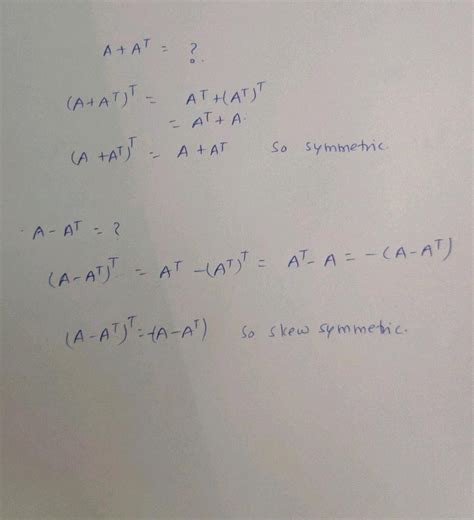 A + Aᵀ = ?
(A+Aᵀ)ᵀ = Aᵀ+(Aᵀ)ᵀ
= Aᵀ + A.
(A + Aᵀ)ᵀ = A + Aᵀ So symmetric.
A - Aᵀ = ?
(A-Aᵀ)ᵀ = Aᵀ - (Aᵀ)ᵀ = Aᵀ - A = -(A-Aᵀ)
(A-Aᵀ)ᵀ = -(A-Aᵀ) So skew symmetric.